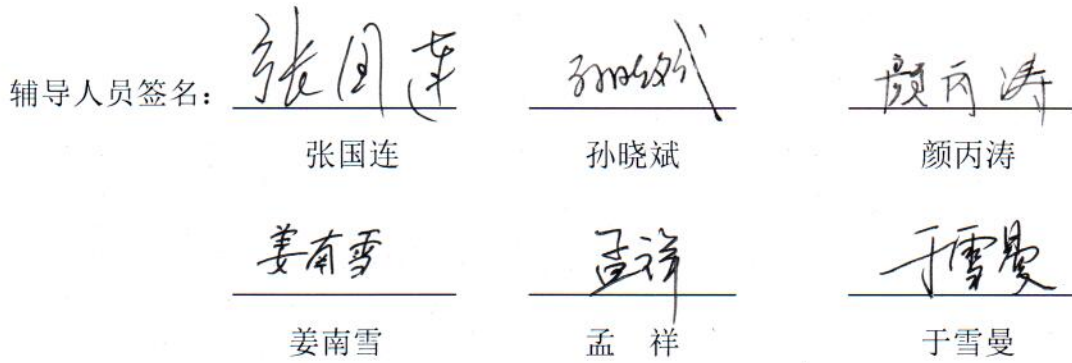 辅导人员签名： 张国连 孙晓斌 颜丙涛
张国连 孙晓斌 颜丙涛
姜南雪 孟祥 于雪曼
姜南雪 孟 祥 于雪曼